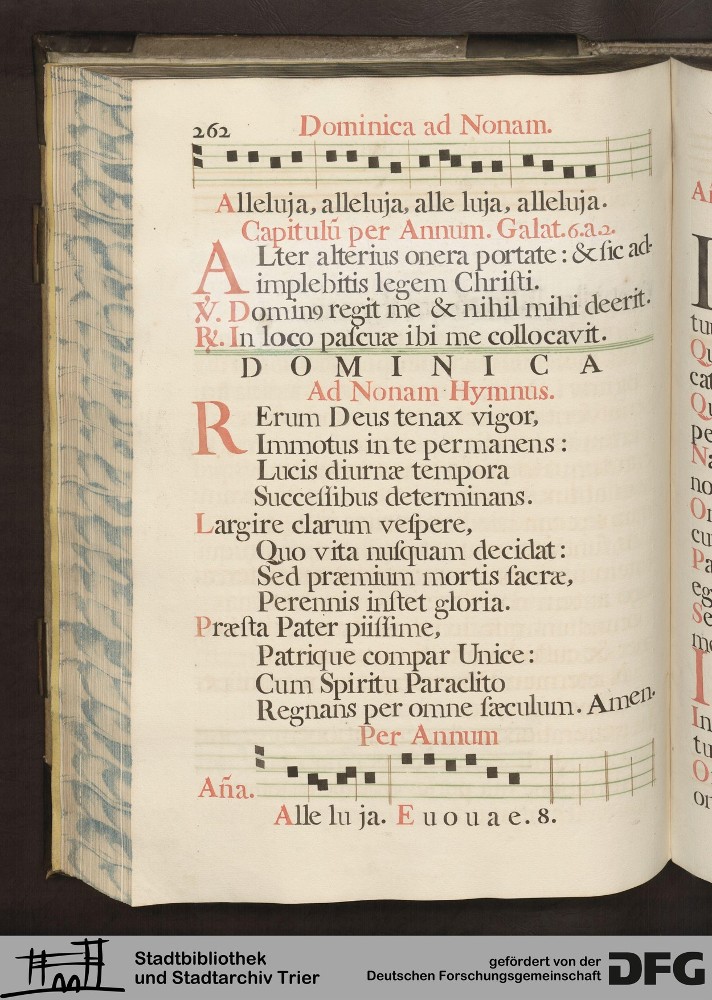 262 Dominica ad Nonam.
Alleluja, alleluja, alle luja, alleluja.
Capitulũ per Annum. Galat. 6. a 2.
ALter alterius onera portate: & ſic ad-
implebitis legem Chriſti.
℣. Dominꝰ regit me & nihil mihi deerit.
℟. In loco paſcuæ ibi me collocavit.
DOMINICA
Ad Nonam Hymnus.
RErum Deus tenax vigor,
Immotus in te permanens:
Lucis diurnæ tempora
Succeſſibus determinans.
Largire clarum veſpere,
Quo vita nuſquam decidat:
Sed præmium mortis ſacræ,
Perennis inſtet gloria.
Præſta Pater piiſſime,
Patrique compar Unice:
Cum Spiritu Paraclito
Regnans per omne ſæculum. Amen.
Per Annum
Aña.
Alle lu ja. E u o u a e. 8.
Stadtbibliothek
und Stadtarchiv Trier
gefördert von der
Deutschen Forschungsgemeinschaft
DFG